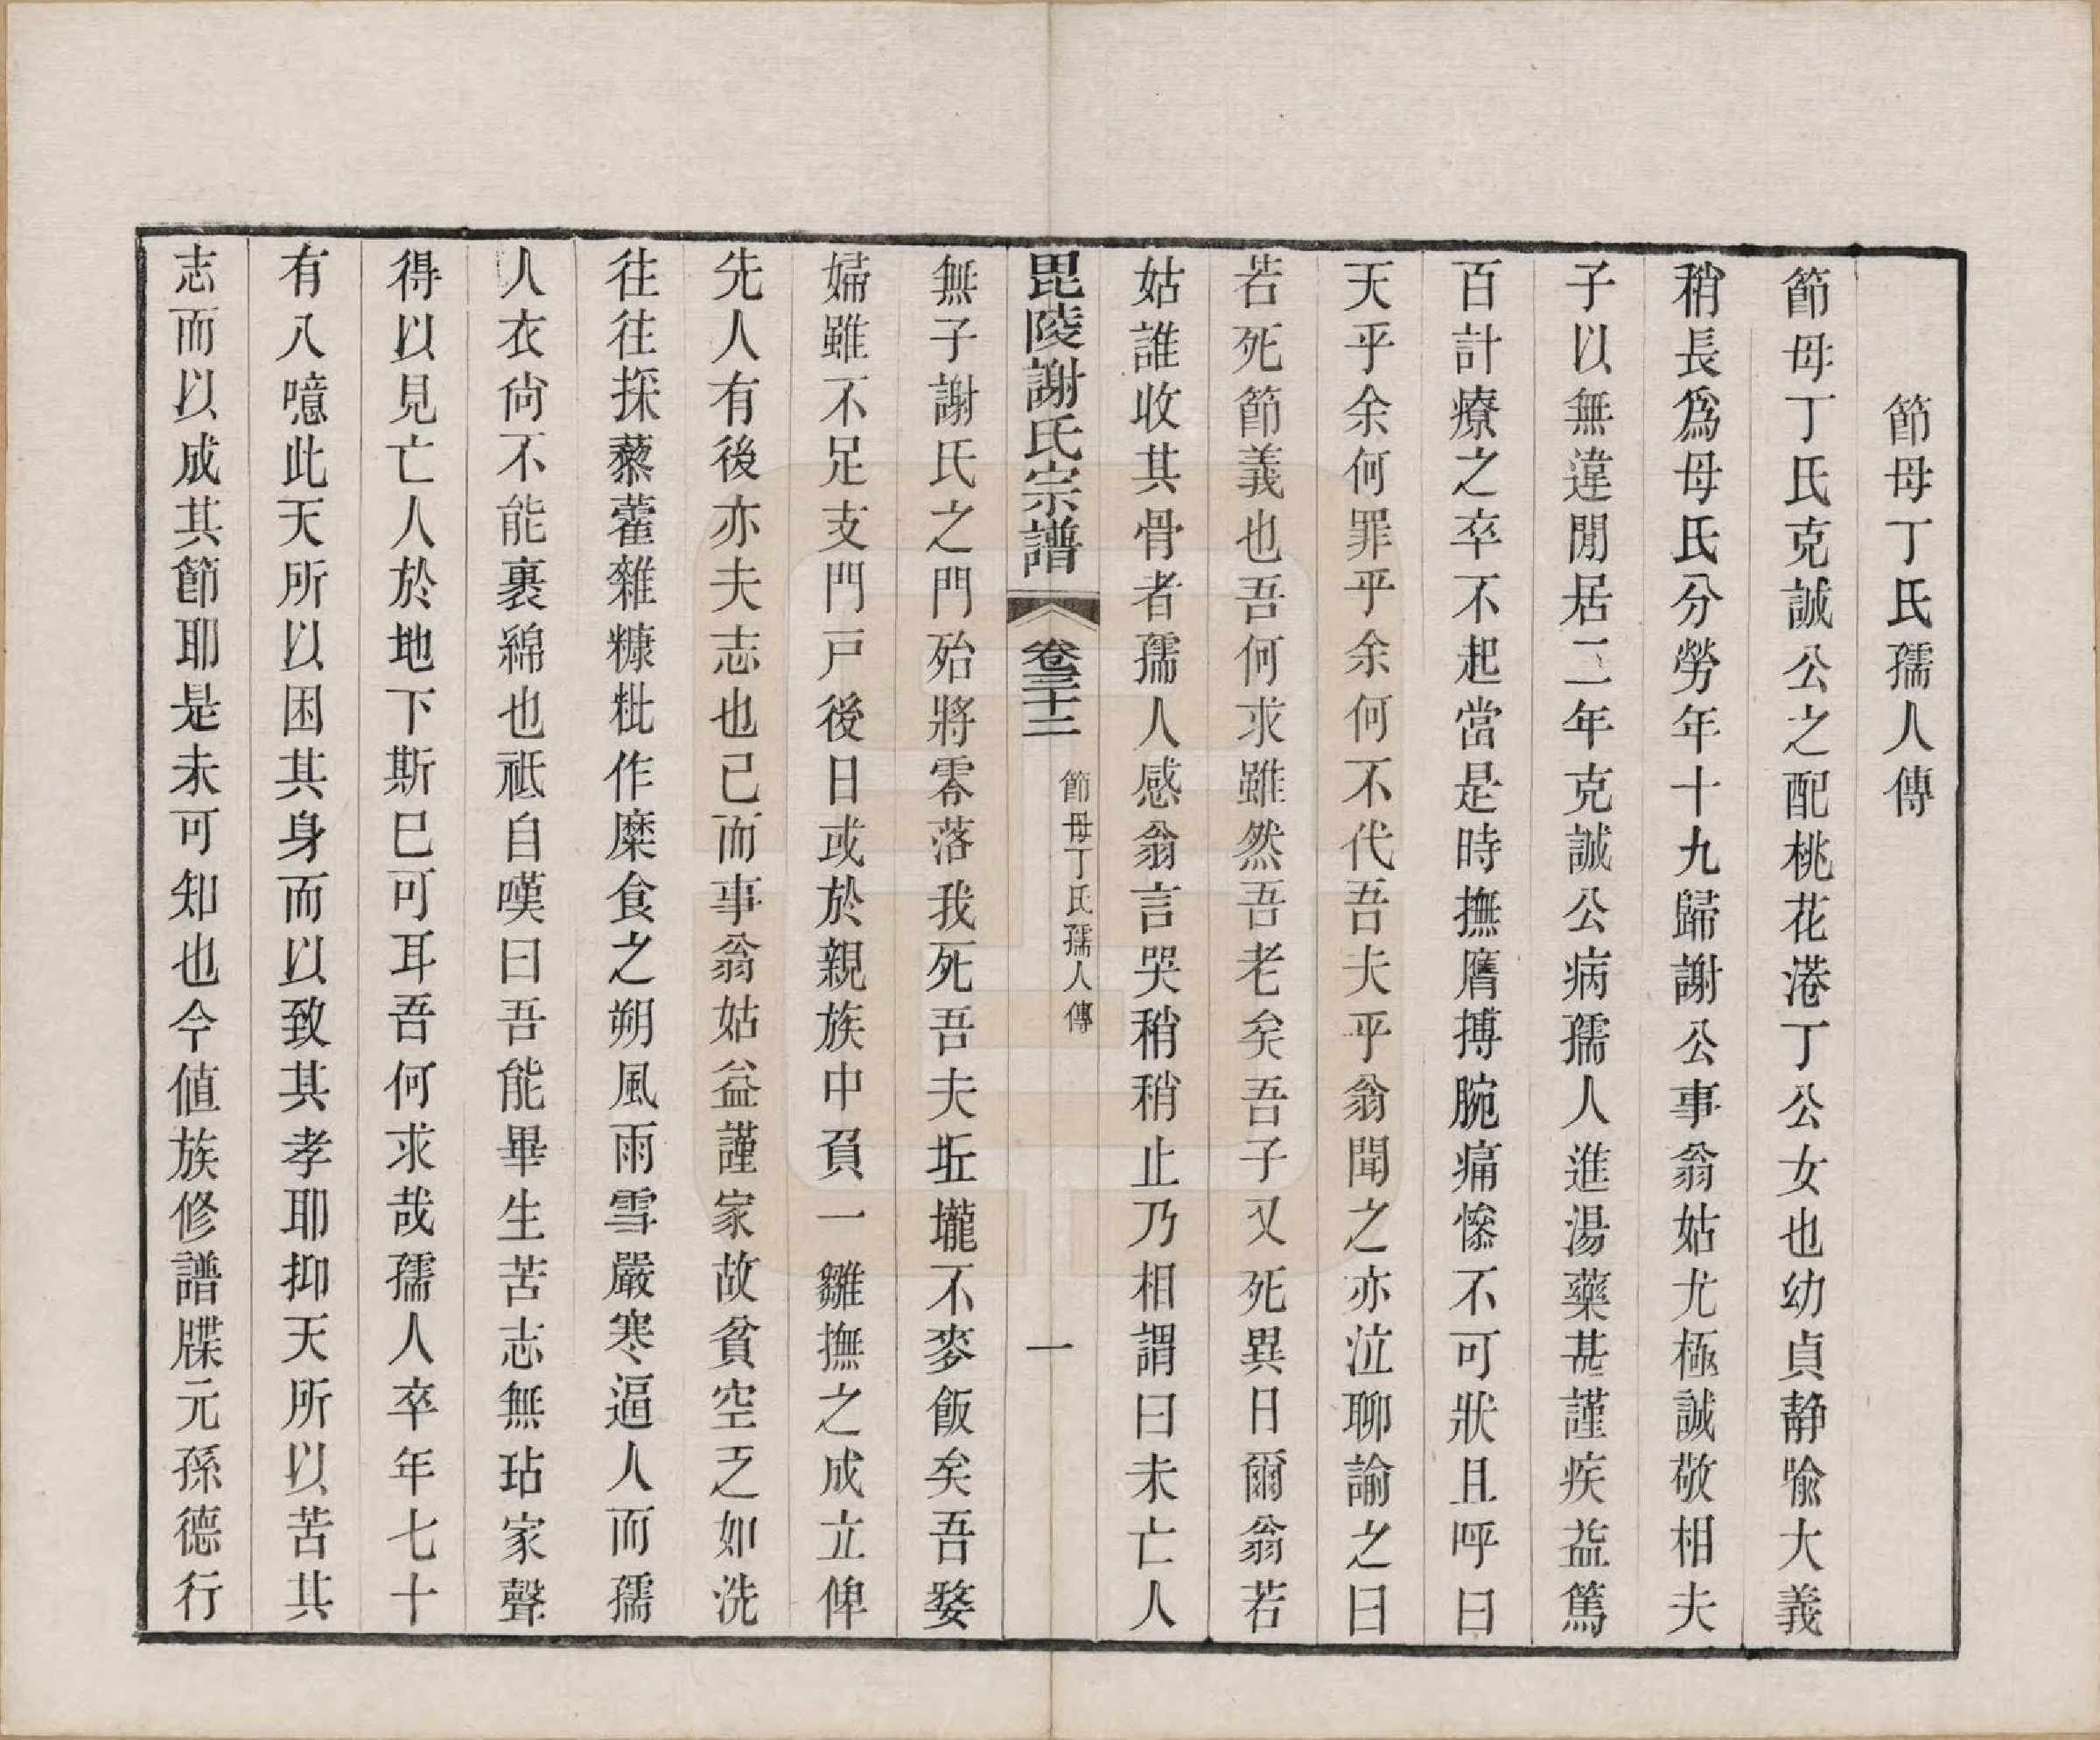 節母丁氏孺人傳
節母丁氏克誠公之配桃花港丁公女也幼貞静喩大義
稍長爲母氏分勞年十九歸謝公事翁姑尤極誠敬相夫
子以無違閒居二年克誠公病孺人進湯藥甚謹疾益篤
百計療之卒不起當是時撫膺搏腕痛慘不可狀且呼曰
天乎余何罪乎余何不代吾夫乎翁聞之亦泣聊諭之曰
若死節義也吾何求雖然吾老矣吾子又死異日爾翁若
姑誰收其骨者孺人感翁言哭稍稍止乃相謂曰未亡人
毘陵謝氏宗譜 卷三十二 節母丁氏孺人傳 一
無子謝氏之門殆將零落我死吾夫坵壠不麥飯矣吾婺
婦雖不足支門戸後日或於親族中負一雛撫之成立俾
先人有後亦夫志也已而事翁姑益謹家故貧空乏如洗
往往採藜藿雜糠粃作糜食之朔風雨雪嚴寒逼人而孺
人衣尙不能裹綿也祗自嘆曰吾能畢生苦志無玷家聲
得以見亡人於地下斯巳可耳吾何求哉孺人卒年七十
有八噫此天所以困其身而以致其孝耶抑天所以苦其
志而以成其節耶是未可知也今値族修譜牒元孫德行